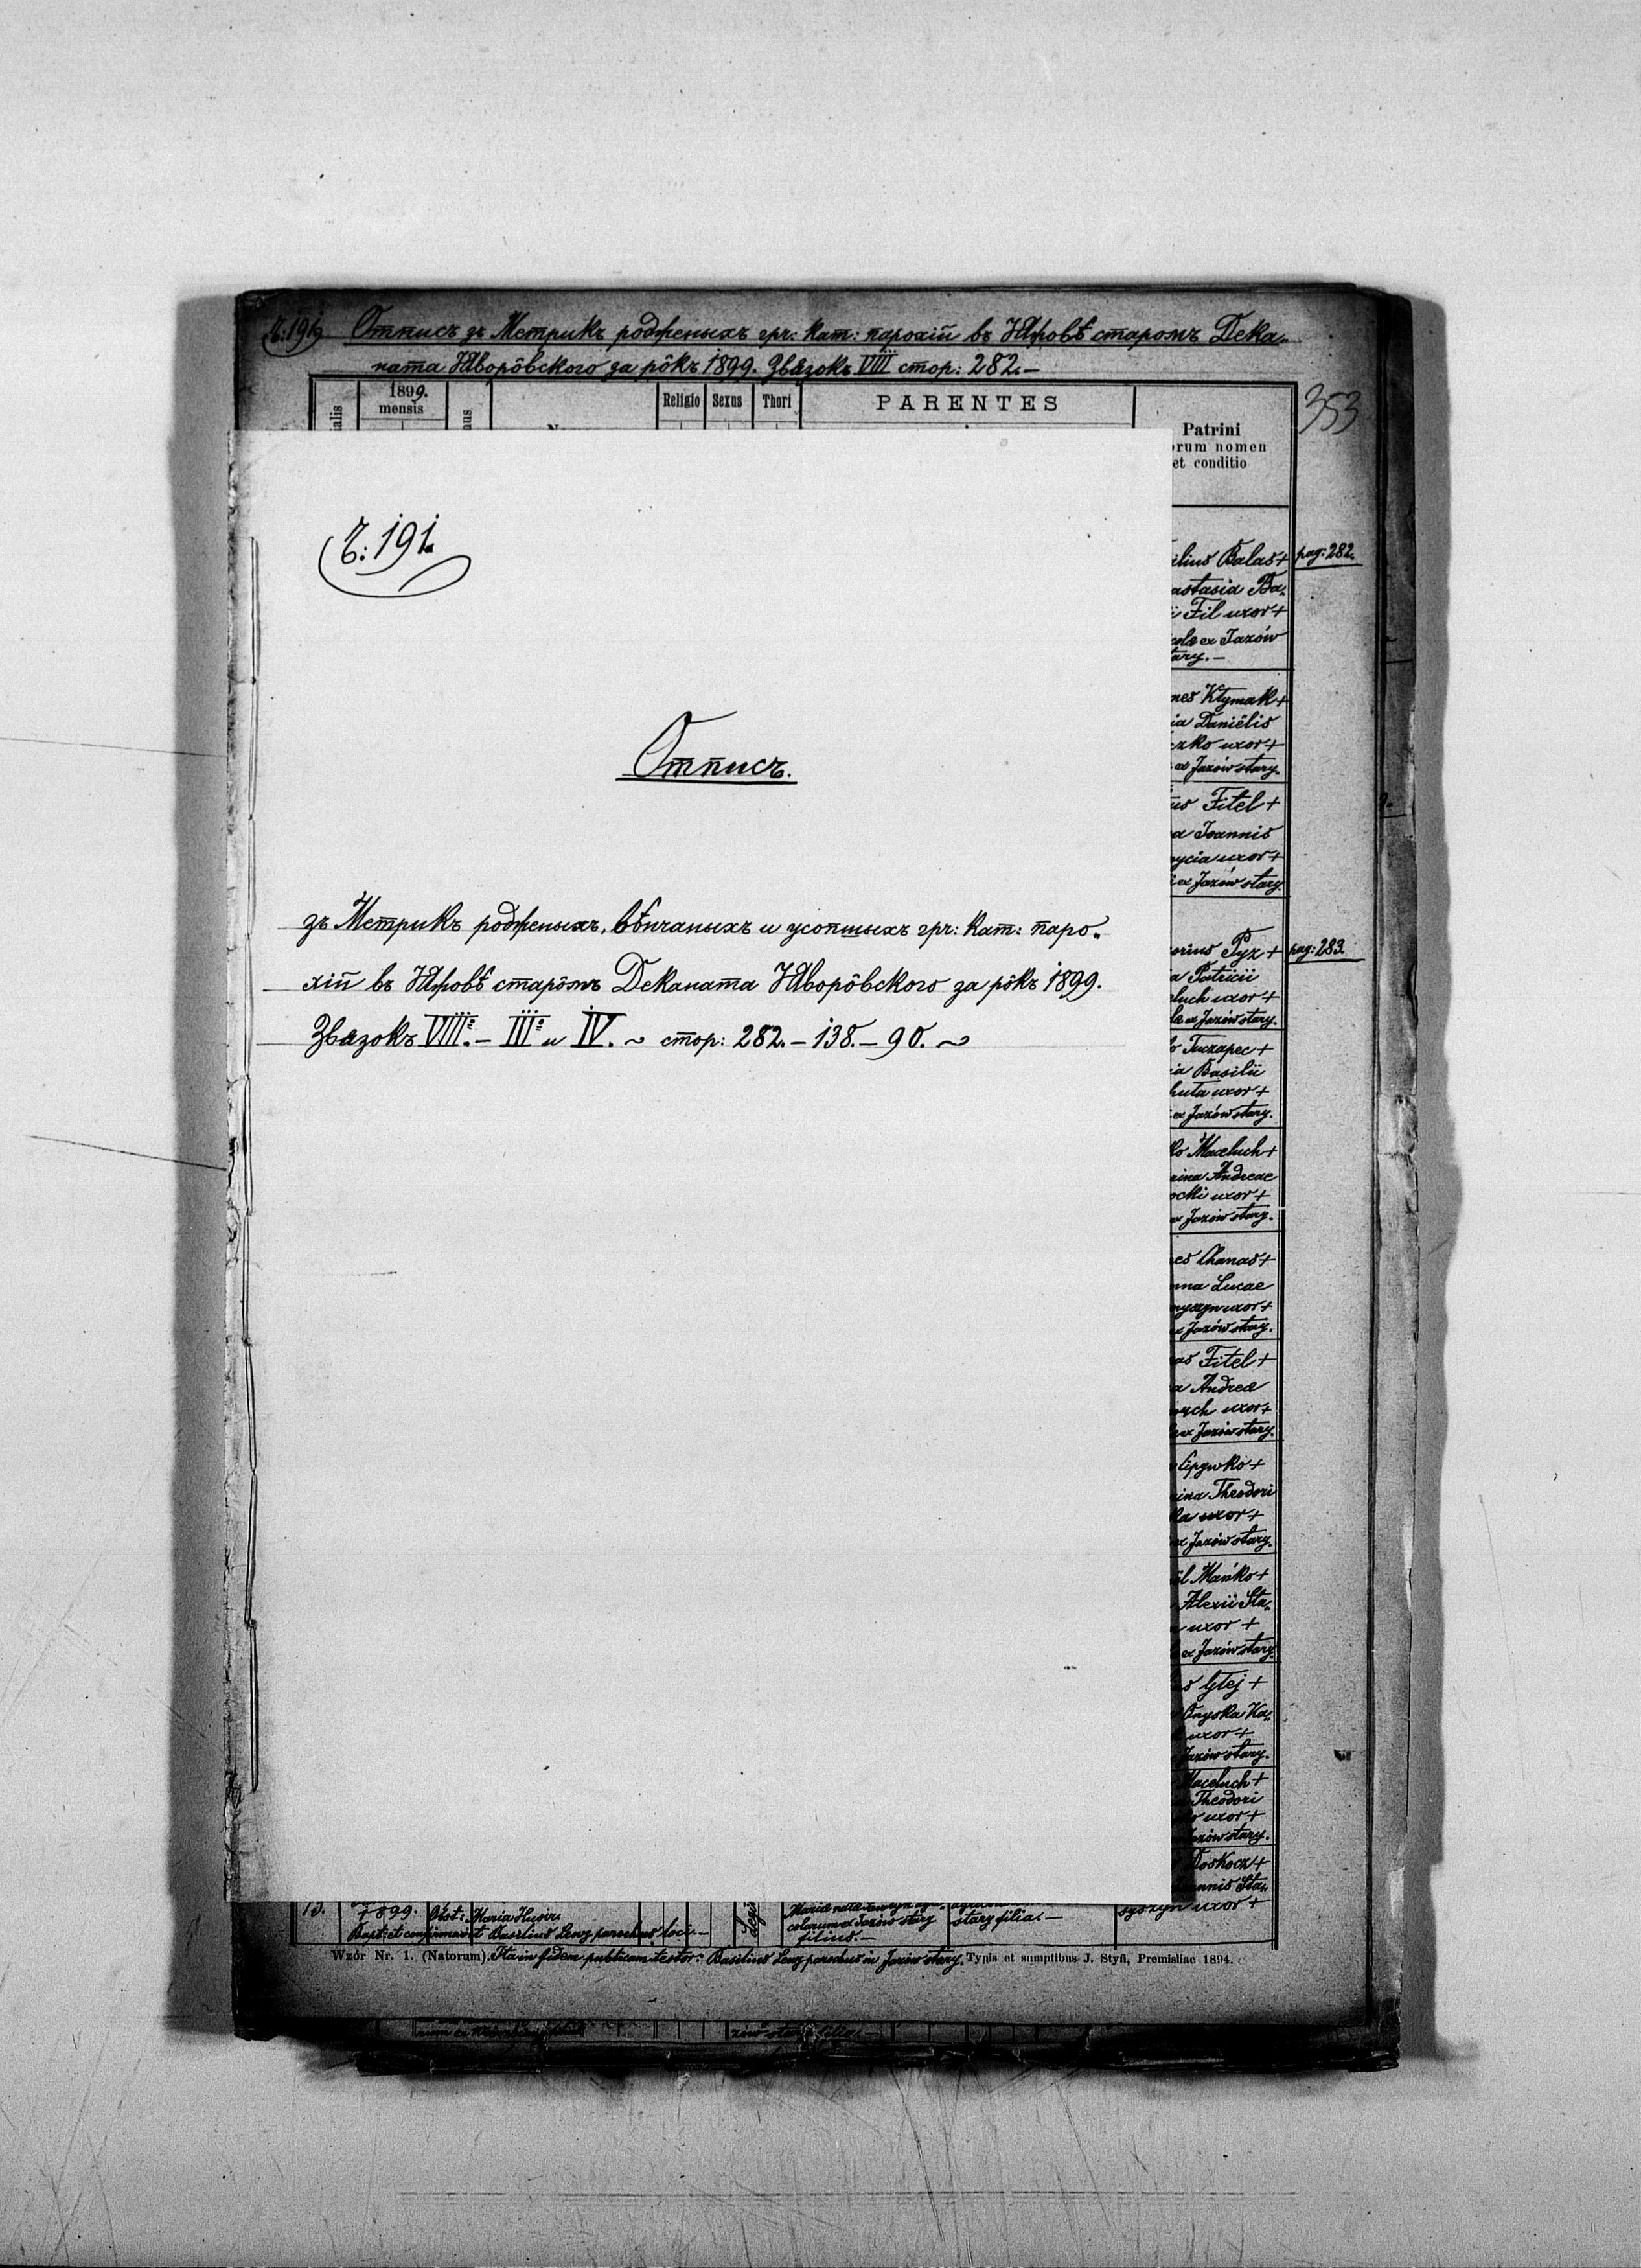 Ч: 191. Отписъ зъ Метрикъ родженыхъ гр: кат: парохіи въ Язовѣ старомъ Дека-
ната Яворôвского за рôкъ 1899. Звязокъ VIII стор: 282.—
353
1899.
mensis
Religio Sexus Thori
PARENTES
Patrini
orum nomen
et conditio
ч: 191.
Отписъ.
зъ Метрикъ родженыхъ, вѣнчаныхъ и усопшыхъ гр: кат: паро-
хіи въ Язовѣ старôмъ Деканата Яворôвского за рôкъ 1899.
Звязокъ VIII. – III и IV. ~ стор: 282. – 138. – 90. ~
ilius Balas +
pag: 282.
astasia Ba-
i Fil uxor +
colæ ex Jazów
tary. —
nes Kłymak +
ia Daniëlis
czko uxor +
ex Jazów stary.
us Fitel +
a Joannis
ycia uxor +
ex Jazów stary.
orius Pyz +
pag: 283.
a Patricii
luch uxor +
ex Jazów stary.
o Tuczapec +
ia Basilii
huta uxor +
ex Jazów stary.
ko Maceluch +
rina Andreae
ocki uxor +
ex Jazów stary.
nes Chanas +
nna Lucae
uxor +
ex Jazów stary.
as Fitel +
a Andreæ
uxor +
ex Jazów stary.
+
rina Theodori
ła uxor +
ex Jazów stary.
il Mańko +
Alexii Sta-
uxor +
ex Jazów stary.
+
Onyska Ka-
uxor +
Jazów stary.
Maceluch +
Theodori
uxor +
Jazów stary.
Doskocz +
oannis Sta-
syszyn uxor +
13. 1899. Obst: Maria Husir.
colarum ex Jazów stary
filius. —
stary filia. —
Bapt: et confirmavit Basilius Lewz parochus loci. —
Wzór Nr. 1. (Natorum). Ita in fidem publicam testor: Basilius Lewz parochus in Jazów stary. Typis et sumptibus J. Styfi, Premisliae 1894.